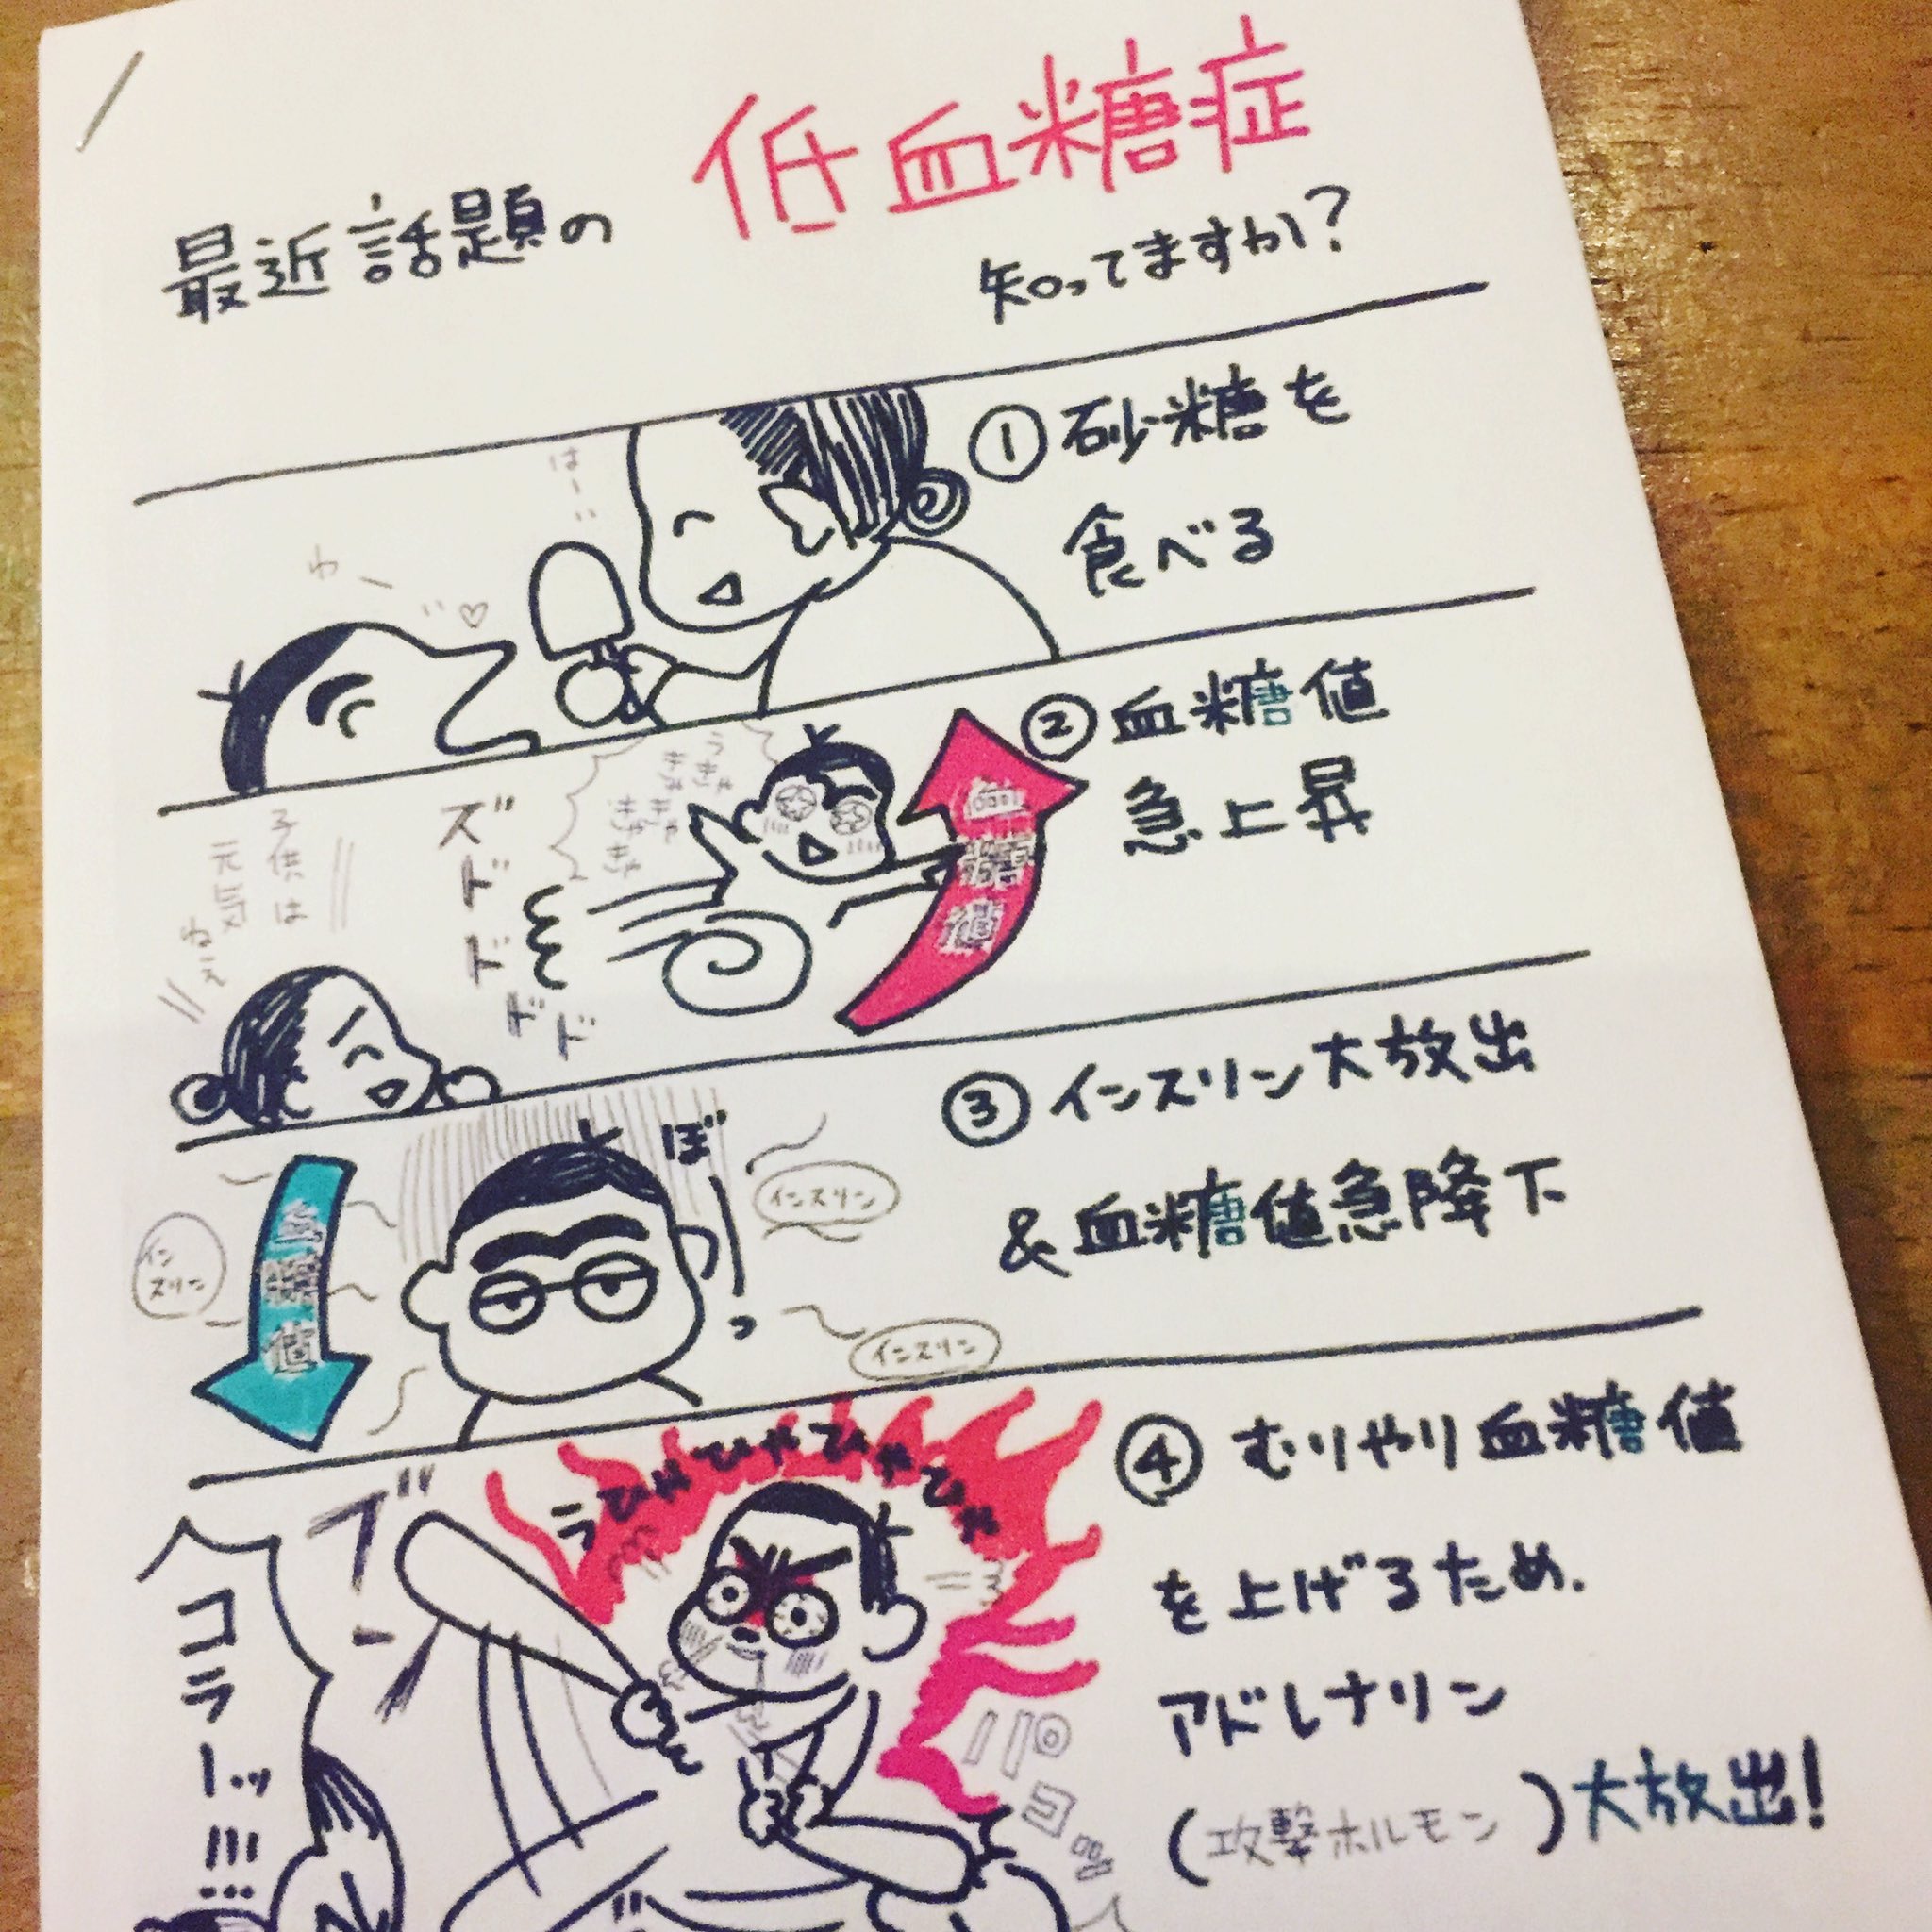 最近話題の
低血糖症
知ってますか？
①砂糖を
食べる
はーい
わー♡
②血糖値
急上昇
血糖値
ズドドドド
子供は
元気
③インスリン大放出
&血糖値急降下
血糖値
ぼーっ
インスリン
インスリン
インスリン
④むりやり血糖値
を上げるため.
アドレナリン
(攻撃ホルモン)大放出!
ラひゃひゃひゃひゃひゃ
ブーン
コラーッ!!!
パコッ